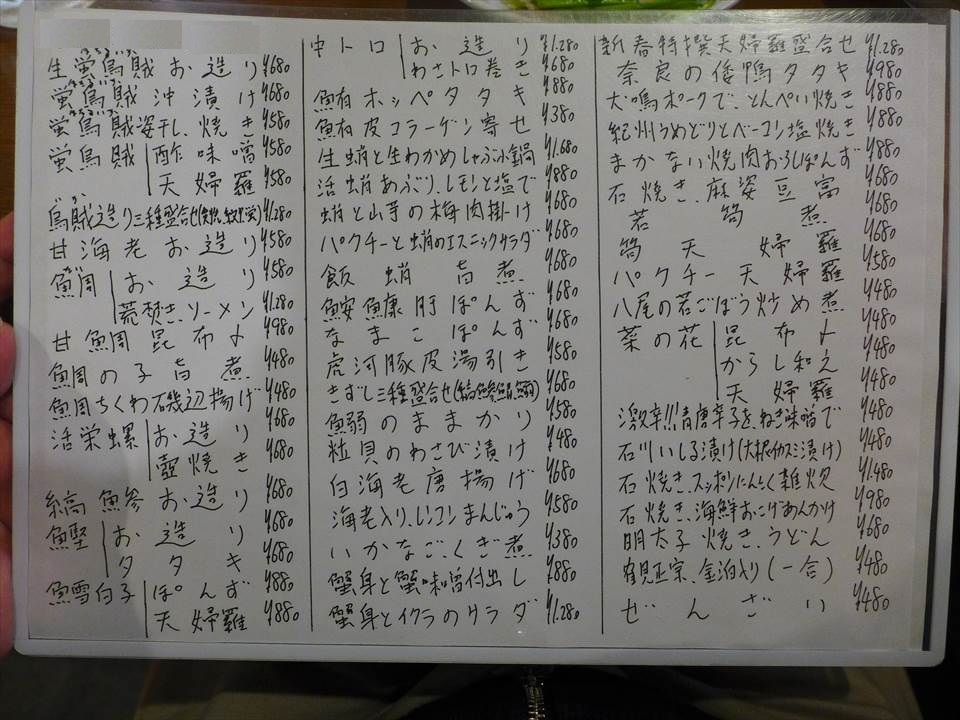 生蛍烏賊お造り ¥680
蛍烏賊沖漬け ¥680
蛍烏賊姿干し、焼き ¥580
蛍烏賊 酢味噌 ¥580
天婦羅 ¥580
烏賊造り三種盛合せ ¥1.280
甘海老お造り ¥580
鯛 お造り ¥580
荒焚きソーメン ¥1.280
甘鯛昆布〆 ¥980
鯛の子旨煮 ¥480
鯛ちくわ磯辺揚げ ¥480
活栄螺 お造り ¥680
壺焼き ¥680
縞鯵お造り ¥680
鰹 お造り ¥680
タタキ ¥680
鱈白子 ぽんず ¥880
天婦羅 ¥880
中トロ お造り ¥1.280
わさトロ巻き ¥680
鮪ホッペタタキ ¥880
鮪皮コラーゲン寄せ ¥380
生蛸と生わかめしゃぶ小鍋 ¥1.680
活蛸あぶり、レモンと塩で ¥880
蛸と山芋の梅肉掛け ¥680
パクチーと蛸のエスニックサラダ ¥680
飯蛸旨煮 ¥680
鮟鱇肝ぽんず ¥680
なまこぽんず ¥680
虎河豚皮湯引き ¥580
きずし三種盛合せ ¥680
鰯のままかり ¥580
粒貝のわさび漬け ¥480
白海老唐揚げ ¥680
海老入り、レンコンまんじゅう ¥580
いかなご、くぎ煮 ¥380
蟹身と蟹味噌付出し ¥880
蟹身とイクラのサラダ ¥1.280
新春特撰天婦羅盛合せ ¥1.280
奈良の倭鴨タタキ ¥980
犬鳴ポークで、とんぺい焼き ¥880
紀州うめどりとベーコン塩焼き ¥880
まかない焼肉おろしぽんず ¥880
石焼き、麻婆豆富 ¥680
若筍煮 ¥680
筍天婦羅 ¥680
パクチー天婦羅 ¥580
八尾の若ごぼう炒め煮 ¥480
菜の花 昆布〆 ¥480
からし和え ¥480
天婦羅 ¥480
激辛!!!青唐辛子を、ねき味噌で ¥480
石川いしる漬け ¥480
石焼き、スッポンにんにく雑炊 ¥1.480
石焼き、海鮮おこげあんかけ ¥980
明太子焼き、うどん ¥680
鶴見正宗、金泊入り(一合) ¥480
ぜんざい ¥480